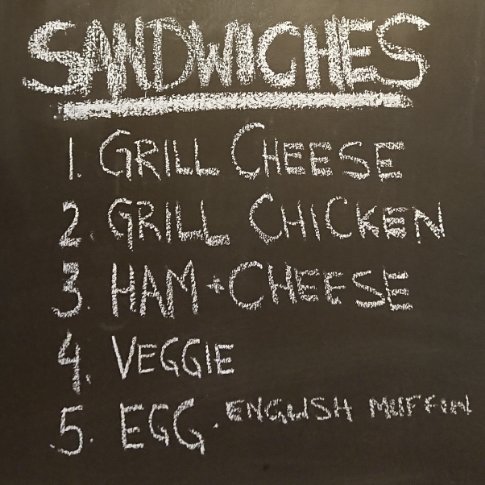 SANDWICHES
1. GRILL CHEESE
2. GRILL CHICKEN
3. HAM + CHEESE
4. VEGGIE
5. EGG. ENGLISH MUFFIN